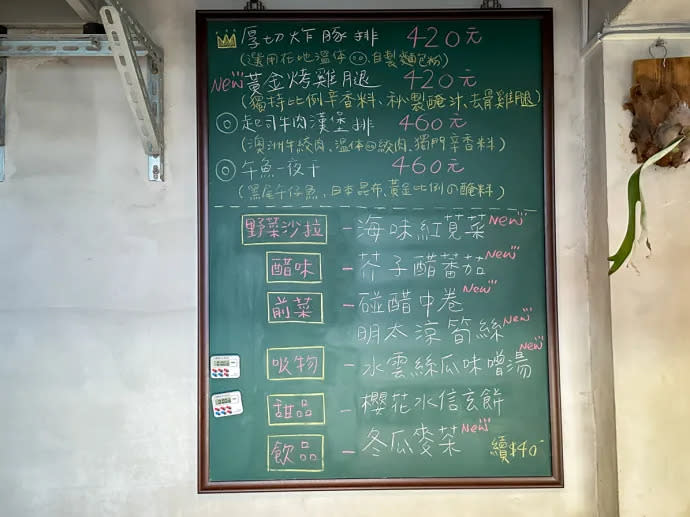 厚切炸豚排 420元
(選用花地溫体 自製麵包粉)
New 黃金烤雞腿 420元
(獨特比例辛香料、祕製醃汁、去骨雞腿)
◎起司牛肉漢堡排 460元
(澳洲牛絞肉、溫体 絞肉、獨門辛香料)
◎午魚一夜干 460元
(黑尾午仔魚、日本昆布、黃金比例の醃料)
野菜沙拉 - 海味紅莧菜 New
醋味 - 芥子醋蕃茄 New
前菜 - 碰醋中卷 New
明太涼筍絲 New
吸物 - 水雲絲瓜味噌湯 New
甜品 - 櫻花水信玄餅
飲品 - 冬瓜麥茶 New 續$40-